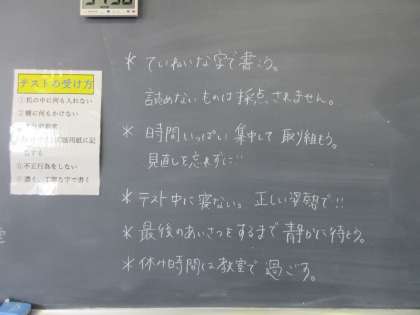 テストの受け方
①机の中に何も入れない
②椅子に何もかけない
に記
入する
⑤不正行為をしない
⑥濃く、丁寧な字で書く
＊ていねいな字で書こう。
読めないものは採点されません。
＊時間いっぱい集中して取り組もう。
見直しを忘れずに…
＊テスト中に寝ない。正しい姿勢で!!
＊最後のあいさつをするまで静かに待とう。
＊休け時間は教室で過ごす。